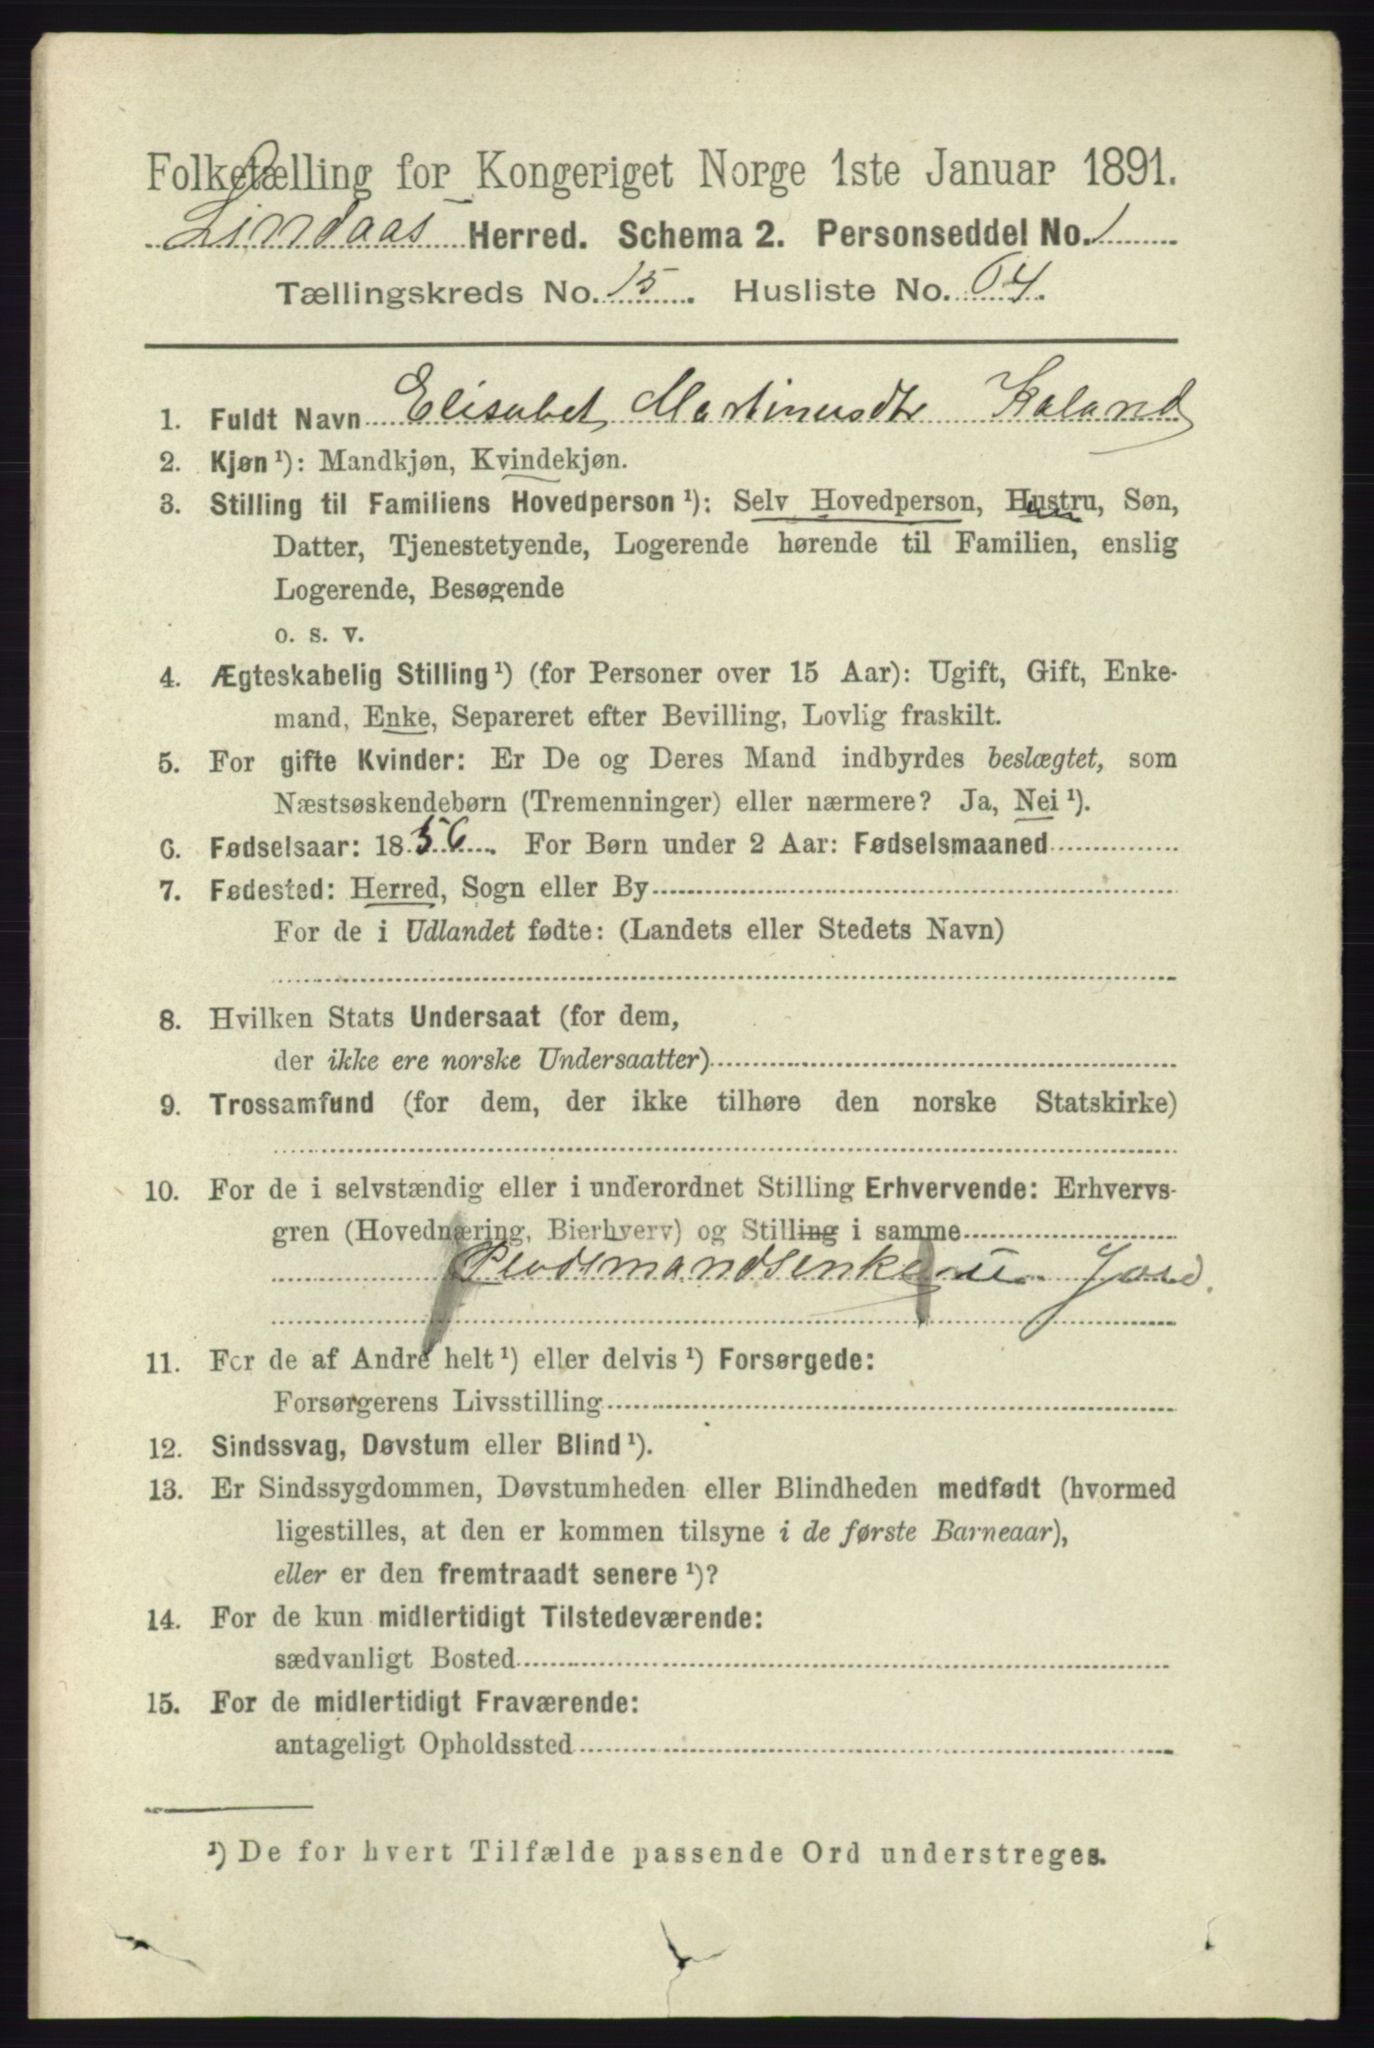 Folketælling for Kongeriget Norge 1ste Januar 1891.
Lindaas Herred. Schema 2. Personseddel No. 1
Tællingskreds No. 15. Husliste No. 64.
1. Fuldt Navn Elisabet Martinusdtr Kaland
2. Kjøn ¹): Mandkjøn, Kvindekjøn.
3. Stilling til Familiens Hovedperson ¹): Selv Hovedperson, Hustru, Søn,
Datter, Tjenestetyende, Logerende hørende til Familien, enslig
Logerende, Besøgende
o. s. v.
4. Ægteskabelig Stilling ¹) (for Personer over 15 Aar): Ugift, Gift, Enke-
mand, Enke, Separeret efter Bevilling, Lovlig fraskilt.
5. For gifte Kvinder: Er De og Deres Mand indbyrdes beslægtet, som
Næstsøskendebørn (Tremenninger) eller nærmere? Ja, Nei ¹).
6. Fødselsaar: 1856. For Børn under 2 Aar: Fødselsmaaned
7. Fødested: Herred, Sogn eller By
For de i Udlandet fødte: (Landets eller Stedets Navn)
8. Hvilken Stats Undersaat (for dem,
der ikke ere norske Undersaatter)
9. Trossamfund (for dem, der ikke tilhøre den norske Statskirke)
10. For de i selvstændig eller i underordnet Stilling Erhvervende: Erhvervs-
gren (Hovednæring, Bierhverv) og Stilling i samme
Pladsmandsenke u. Jord.
11. For de af Andre helt ¹) eller delvis ¹) Forsørgede:
Forsørgerens Livsstilling
12. Sindssvag, Døvstum eller Blind ¹).
13. Er Sindssygdommen, Døvstumheden eller Blindheden medfødt (hvormed
ligestilles, at den er kommen tilsyne i de første Barneaar),
eller er den fremtraadt senere ¹)?
14. For de kun midlertidigt Tilstedeværende:
sædvanligt Bosted
15. For de midlertidigt Fraværende:
antageligt Opholdssted
¹) De for hvert Tilfælde passende Ord understreges.